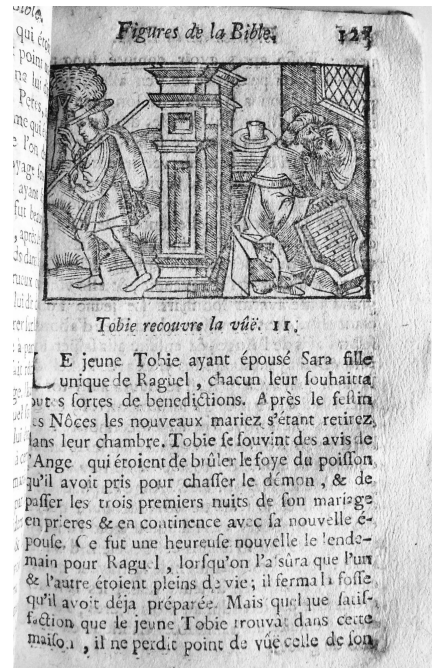 Figures de la Bible. 127
Tobie recouvre la vûë. 11.
LE jeune Tobie ayant épousé Sara fille
unique de Raguel, chacun leur souhaitta
toutes sortes de benedictions. Après le festin
es Nôces les nouveaux mariez s'étant retirez
dans leur chambre. Tobie se souvint des avis de
l'Ange qui étoient de brûler le foye du poisson
qu'il avoit pris pour chasser le démon, & de
passer les trois premiers nuits de son mariage
en prieres & en continence avec sa nouvelle é-
pouse. Ce fut une heureuse nouvelle le lende-
main pour Raguel, lorsqu'on l'assûra que l'un
& l'autre étoient pleins de vie; il ferma la fosse
qu'il avoit déja préparée. Mais quelque satis-
faction que le jeune Tobie trouvât dans cette
maison, il ne perdit point de vûë celle de son